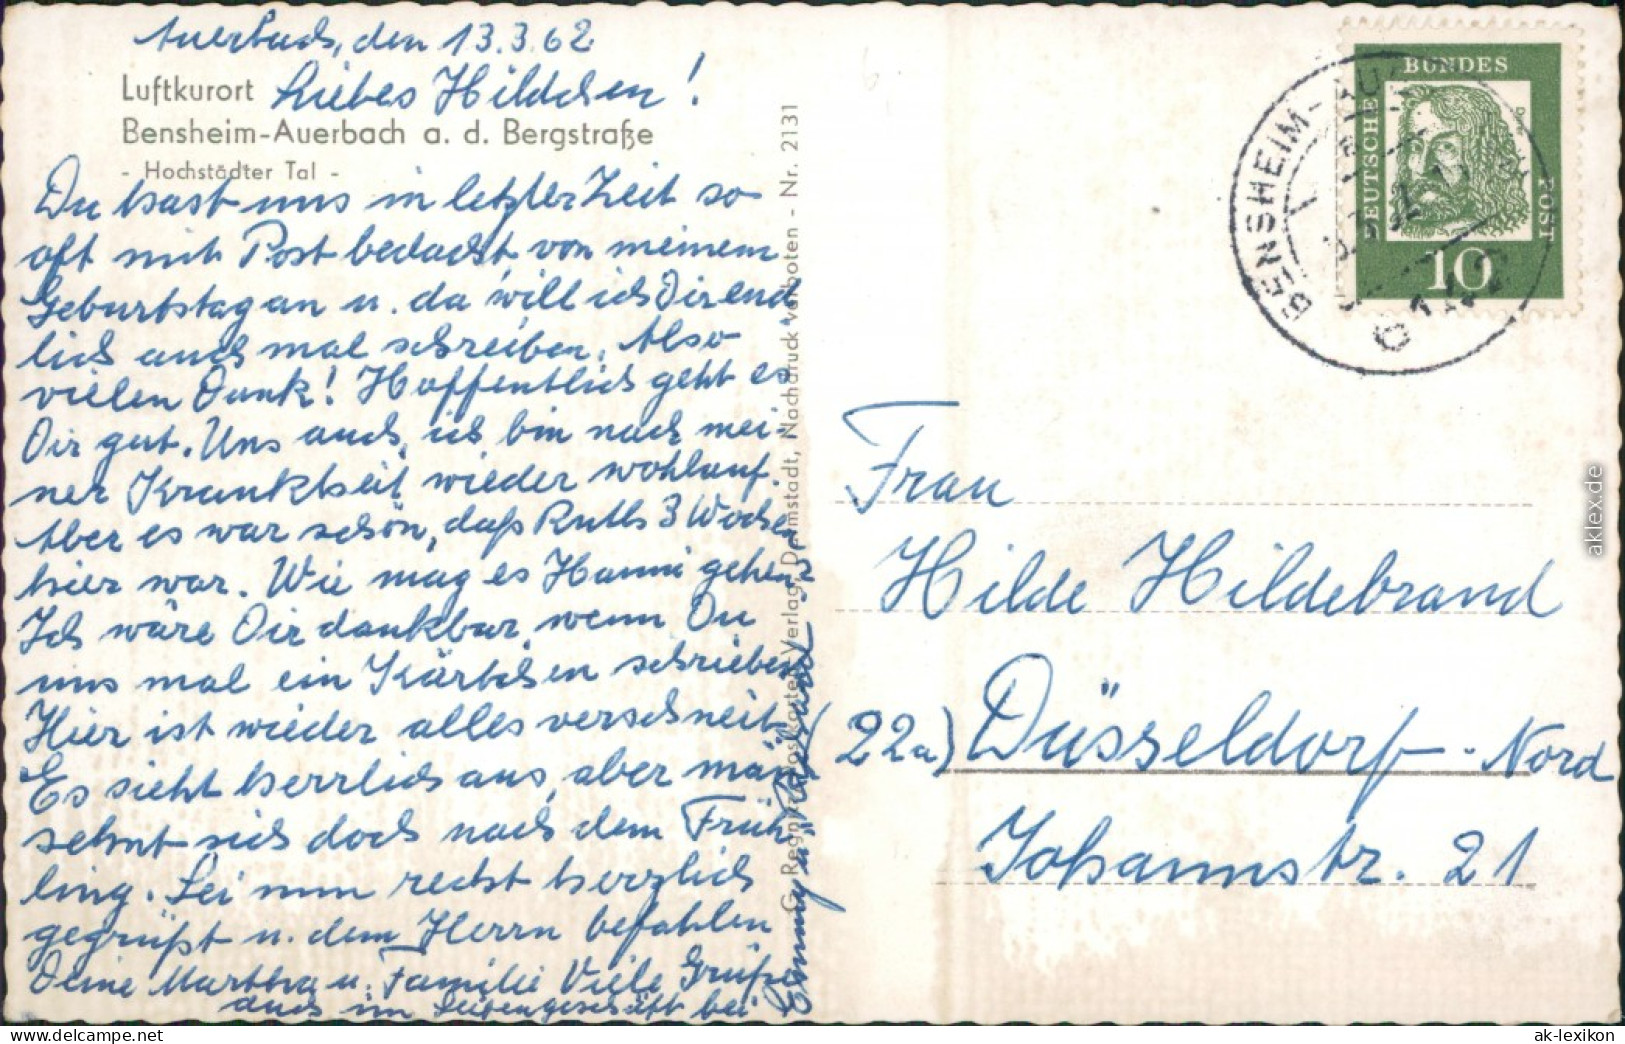 Auerbach, den 13.3.62
Luftkurort
Liebes Hildchen!
Bensheim-Auerbach a. d. Bergstraße
- Hochstädter Tal -
Du hast uns in letzter Zeit so
oft mit Post bedacht, von meinem
Geburtstag an u. da will ich Dir end
lich auch mal schreiben. Also
vielen Dank! Hoffentlich geht es
Dir gut. Uns auch, ich bin nach mei-
ner Krankheit wieder wohlauf.
Aber es war schön, daß Ruth 3 Wochen
hier war. Wie mag es Hanni gehen?
Ich wäre Dir dankbar, wenn Du
uns mal ein Kärtchen schriebest
Hier ist wieder alles verschneit.
Es sieht herrlich aus, aber man
sehnt sich doch nach dem Früh
ling. Sei nun recht herzlich
gegrüßt u. dem Herrn befohlen
Deine Martha u. Familie Viele Grüße
auch im Seifengeschäft bei
G. Regn Postkarten-Verlag, Darmstadt, Nachdruck verboten - Nr. 2131
DEUTSCHE BUNDES POST
10
BENSHEIM-AUERBACH
Frau
Hilde Hildebrand
(22a) Düsseldorf-Nord
Johannstr. 21
aklex.de
www.ak-ansichtskarten.de
ak-lexikon